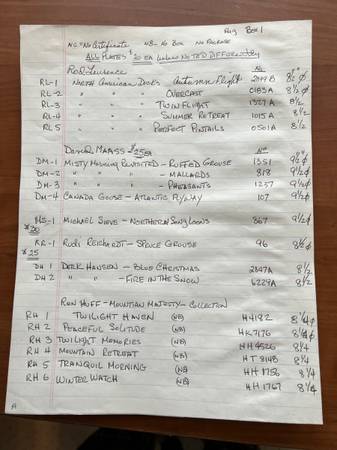 Pkg Box 1
NC = No Certificate NB - No Box No Package
ALL PLATES $20 EA Unless NOTED DIFFERENTLY
Rod Lawrence No.
RL-1 North American Ducks Autumn Flight 2099B 8½" ∅
RL-2 " " " OVERCAST 0183A 8½ ∅
RL-3 " " " TWIN FLIGHT 1327A 8½
RL-4 " " " SUMMER RETREAT 1015A 8½
RL 5 " " " PERFECT PINTAILS 0501A 8½
David MAASS $25 ea No
DM-1 MISTY MORNING REVISITED - RUFFED GROUSE 1351 9½" ∅
DM-2 " " " - MALLARDS 818 9½ ∅
DM-3 " " " - PHEASANTS 1237 9½ ∅
DM-4 CANADA GOOSE - ATLANTIC FLYWAY 107 9½ ∅
MS-1 MICHAEL SIEVE - NORTHERN SONG LOONS 867 9½ ∅
$20
RR-1 RUDI REICHARDT - SPRUCE GROUSE 96 8½ ∅
$25
DH 1 DERK HANSEN - BLUE CHRISTMAS 2847A 8½
DH 2 " " - FIRE IN THE SNOW 6229A 8½
RON HUFF - MOUNTAIN MAJESTY - COLLECTION
RH 1 TWILIGHT HAVEN (NB) H4182 8¼ ∅
RH 2 PEACEFUL SOLITUDE (NB) HK7176 8¼ ∅
RH 3 TWILIGHT MEMORIES (NB) HH4526 8¼
RH 4 MOUNTAIN RETREAT (NB) HT 8148 8¼
RH 5 TRANQUIL MORNING (NB) HH 1756 8¼
RH 6 WINTER WATCH (NB) HH 1767 8¼
A